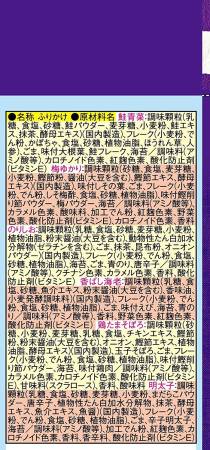 ●名称 ふりかけ ●原材料名 鮭青菜:調味顆粒(乳
糖、食塩、砂糖、鮭パウダー、麦芽糖、小麦粉、鮭エキ
ス、抹茶、酵母エキス)(国内製造)、フレーク(小麦粉、で
ん粉、かぼちゃ、食塩、砂糖、植物油脂、ほうれん草、人
参)、ごま、味付大根葉、鮭フレーク、海苔/調味料(ア
ミノ酸等)、カロチノイド色素、紅麹色素、酸化防止剤
(ビタミンE) 梅ゆかり:調味顆粒(砂糖、食塩、麦芽糖、
小麦粉、鰹節粉、醤油(大豆を含む)、鰹節エキス、酵母
エキス)(国内製造)、味付しその葉、ごま、フレーク(小麦
粉、でん粉、しそ梅酢、食塩、砂糖、植物油脂)、味付鰹削
り節パウダー、梅パウダー、海苔/調味料(アミノ酸等)、
カラメル色素、酸味料、加工でん粉、紅麹色素、野菜
色素、酸化防止剤(ビタミンE)、カロチノイド色素、香料
のりしお:調味顆粒(乳糖、食塩、砂糖、麦芽糖、小麦粉、
植物油脂、粉末醤油(大豆を含む)、動物性たん白加水
分解物(ゼラチンを含む)、ごま、抹茶、昆布粉、オニオン
パウダー)(国内製造)、フレーク(小麦粉、でん粉、食塩、
砂糖、植物油脂)、海苔、ごま、青のり、唐辛子/調味料
(アミノ酸等)、クチナシ色素、カラメル色素、香料、酸化
防止剤(ビタミンE) 香ばし海老:調味顆粒(乳糖、食
塩、砂糖、魚介エキス、粉末醤油(大豆を含む)、香味油、
小麦発酵調味料)(国内製造)、フレーク(小麦粉、でん
粉、食塩、砂糖、植物油脂)、ごま、味付えび、海苔、青の
り/調味料(アミノ酸等)、香料、野菜色素、紅麹色素、
酸化防止剤(ビタミンE) 鶏たまそぼろ:調味顆粒(砂
糖、小麦粉、麦芽糖、乳糖、食塩、チキンエキス、鰹節
粉、粉末醤油(大豆を含む)、オニオン、鰹節エキス、植物
油脂、酵母エキス)(国内製造)、玉子そぼろ、ごま、フレー
ク(小麦粉、でん粉、食塩、砂糖、植物油脂)、味付鰹削り
節パウダー、海苔、味付鶏肉/調味料(アミノ酸等)、
カラメル色素、カロチノイド色素、酸化防止剤(ビタミン
E)、甘味料(スクラロース)、香料、酸味料 明太子:調味
顆粒(乳糖、食塩、砂糖、麦芽糖、小麦粉、まだらこパウ
ダー、唐辛子、植物性たん白加水分解物、抹茶、酵母
エキス、魚介エキス、魚醤)(国内製造)、フレーク(小麦
粉、でん粉、食塩、砂糖、植物油脂)、ごま、辛子明太子、
海苔/調味料(アミノ酸等)、加工でん粉、紅麹色素、カ
ロチノイド色素、香料、香辛料、酸化防止剤(ビタミンE)